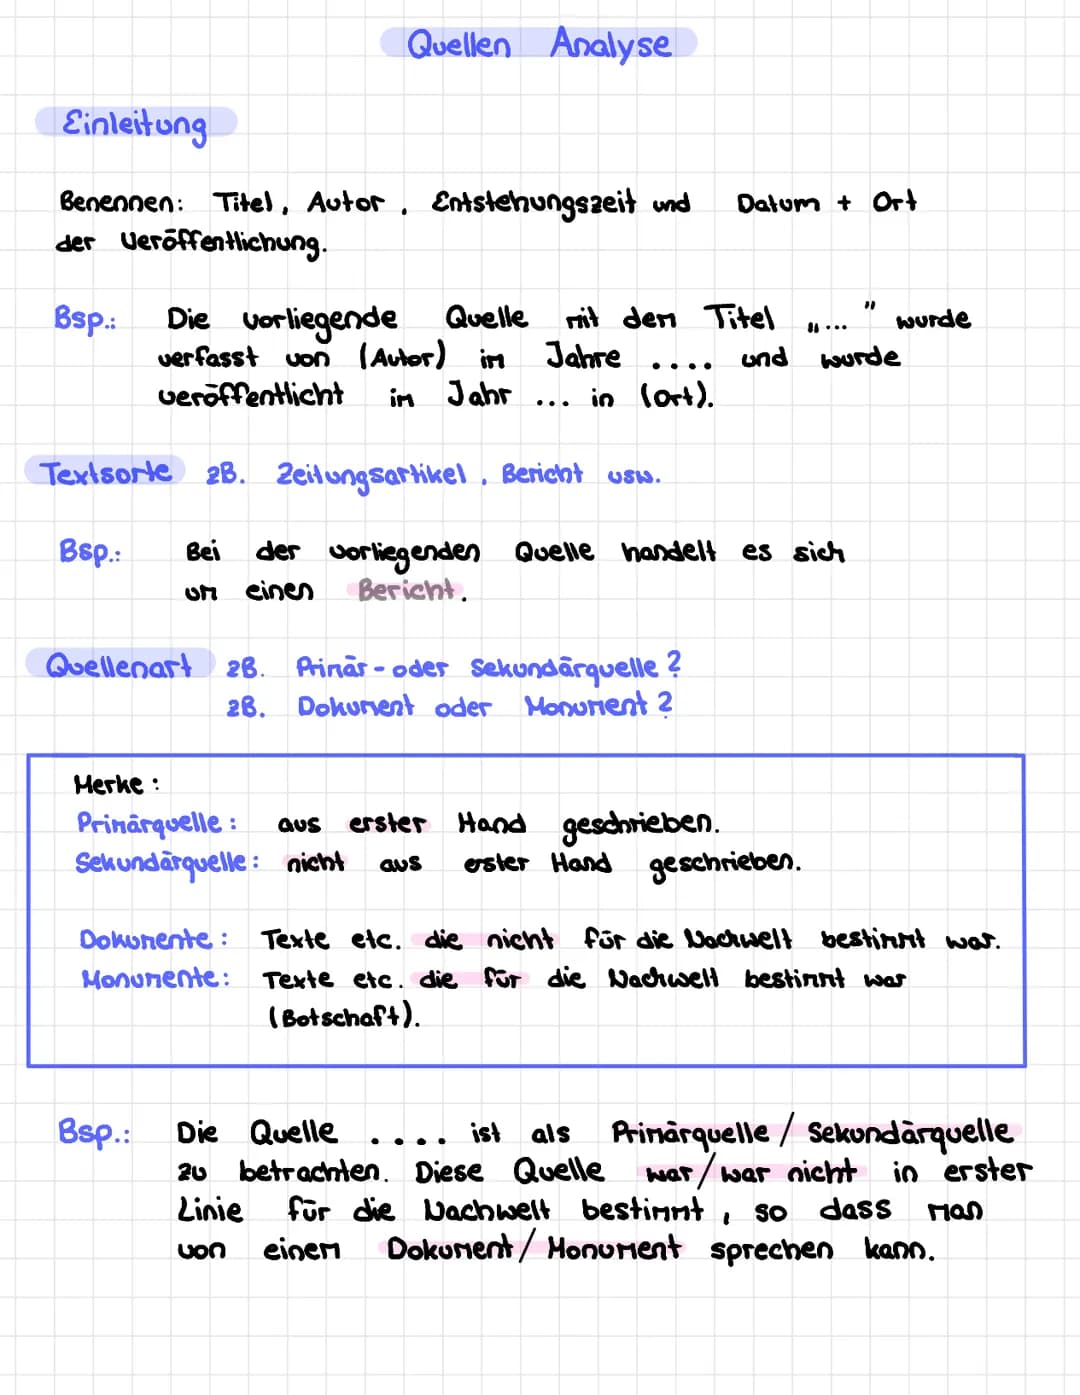 Quellen Analyse
Einleitung
Benennen: Titel, Autor, Entstehungszeit und Datum + Ort
der Veröffentlichung.
Bsp.: Die vorliegende Quelle mit dem Titel „..." wurde
verfasst von (Autor) im Jahre .... und wurde
veröffentlicht im Jahr ... in (Ort).
Textsorte zB. Zeitungsartikel, Bericht usw.
Bsp.: Bei der vorliegenden Quelle handelt es sich
um einen Bericht.
Quellenart zB. Primär-oder Sekundärquelle?
zB. Dokument oder Monument?
Merke:
Primärquelle: aus erster Hand geschrieben.
Sekundärquelle: nicht aus erster Hand geschrieben.
Dokumente: Texte etc. die nicht für die Nachwelt bestimmt war.
Monumente: Texte etc. die für die Nachwelt bestimmt war
(Botschaft).
Bsp.: Die Quelle .... ist als Primärquelle/Sekundärquelle
zu betrachten. Diese Quelle war/war nicht in erster
Linie für die Nachwelt bestimmt, so dass man
von einem Dokument/Monument sprechen kann.